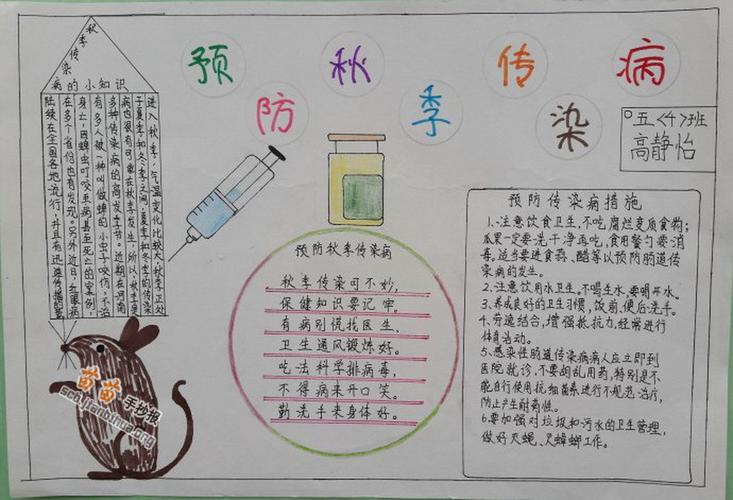 预防秋季传染病
五〈4〉班
高静怡
秋季传染
病的小知识
进入秋季,气温变化比较大,秋季正处
于夏季和冬季之间,夏季和冬季的传染
病均很有可能在秋季发生,所以,秋季是
多种传染病的高发季节。近期在河南
有多人被一种叫做蜱的小虫子咬伤,不治
身亡,因蜱虫叮咬至病甚至死亡的案例,
在多个省份也有发现,另外近日,红眼病
陆续在全国各地流行,并且有迅速传播的
预防秋季传染病
秋季传染可不妙,
保健知识要记牢。
有病别慌找医生,
卫生通风锻炼好。
吃法科学排病毒,
不得病来开口笑。
勤洗手来身体好。
预防传染病措施
1、注意饮食卫生,不吃腐烂变质食物;
瓜果一定要洗干净再吃,食用餐勺要消
毒。适当要进食蒜、醋等以预防肠道传
染病的发生。
2、注意饮用水卫生、不喝生水、要喝开水。
3、养成良好的卫生习惯,饭前、便后洗手。
4、劳逸结合,增强抵抗力,经常进行
体育活动。
5、感染性肠道传染病病人应立即到
医院就诊,不要胡乱用药,特别是不
能自行使用抗细菌素进行不规范治疗,
防止产生耐药性。
6、要加强对垃圾和污水的卫生管理,
做好灭蝇、灭蟑螂工作。
苗苗手抄报